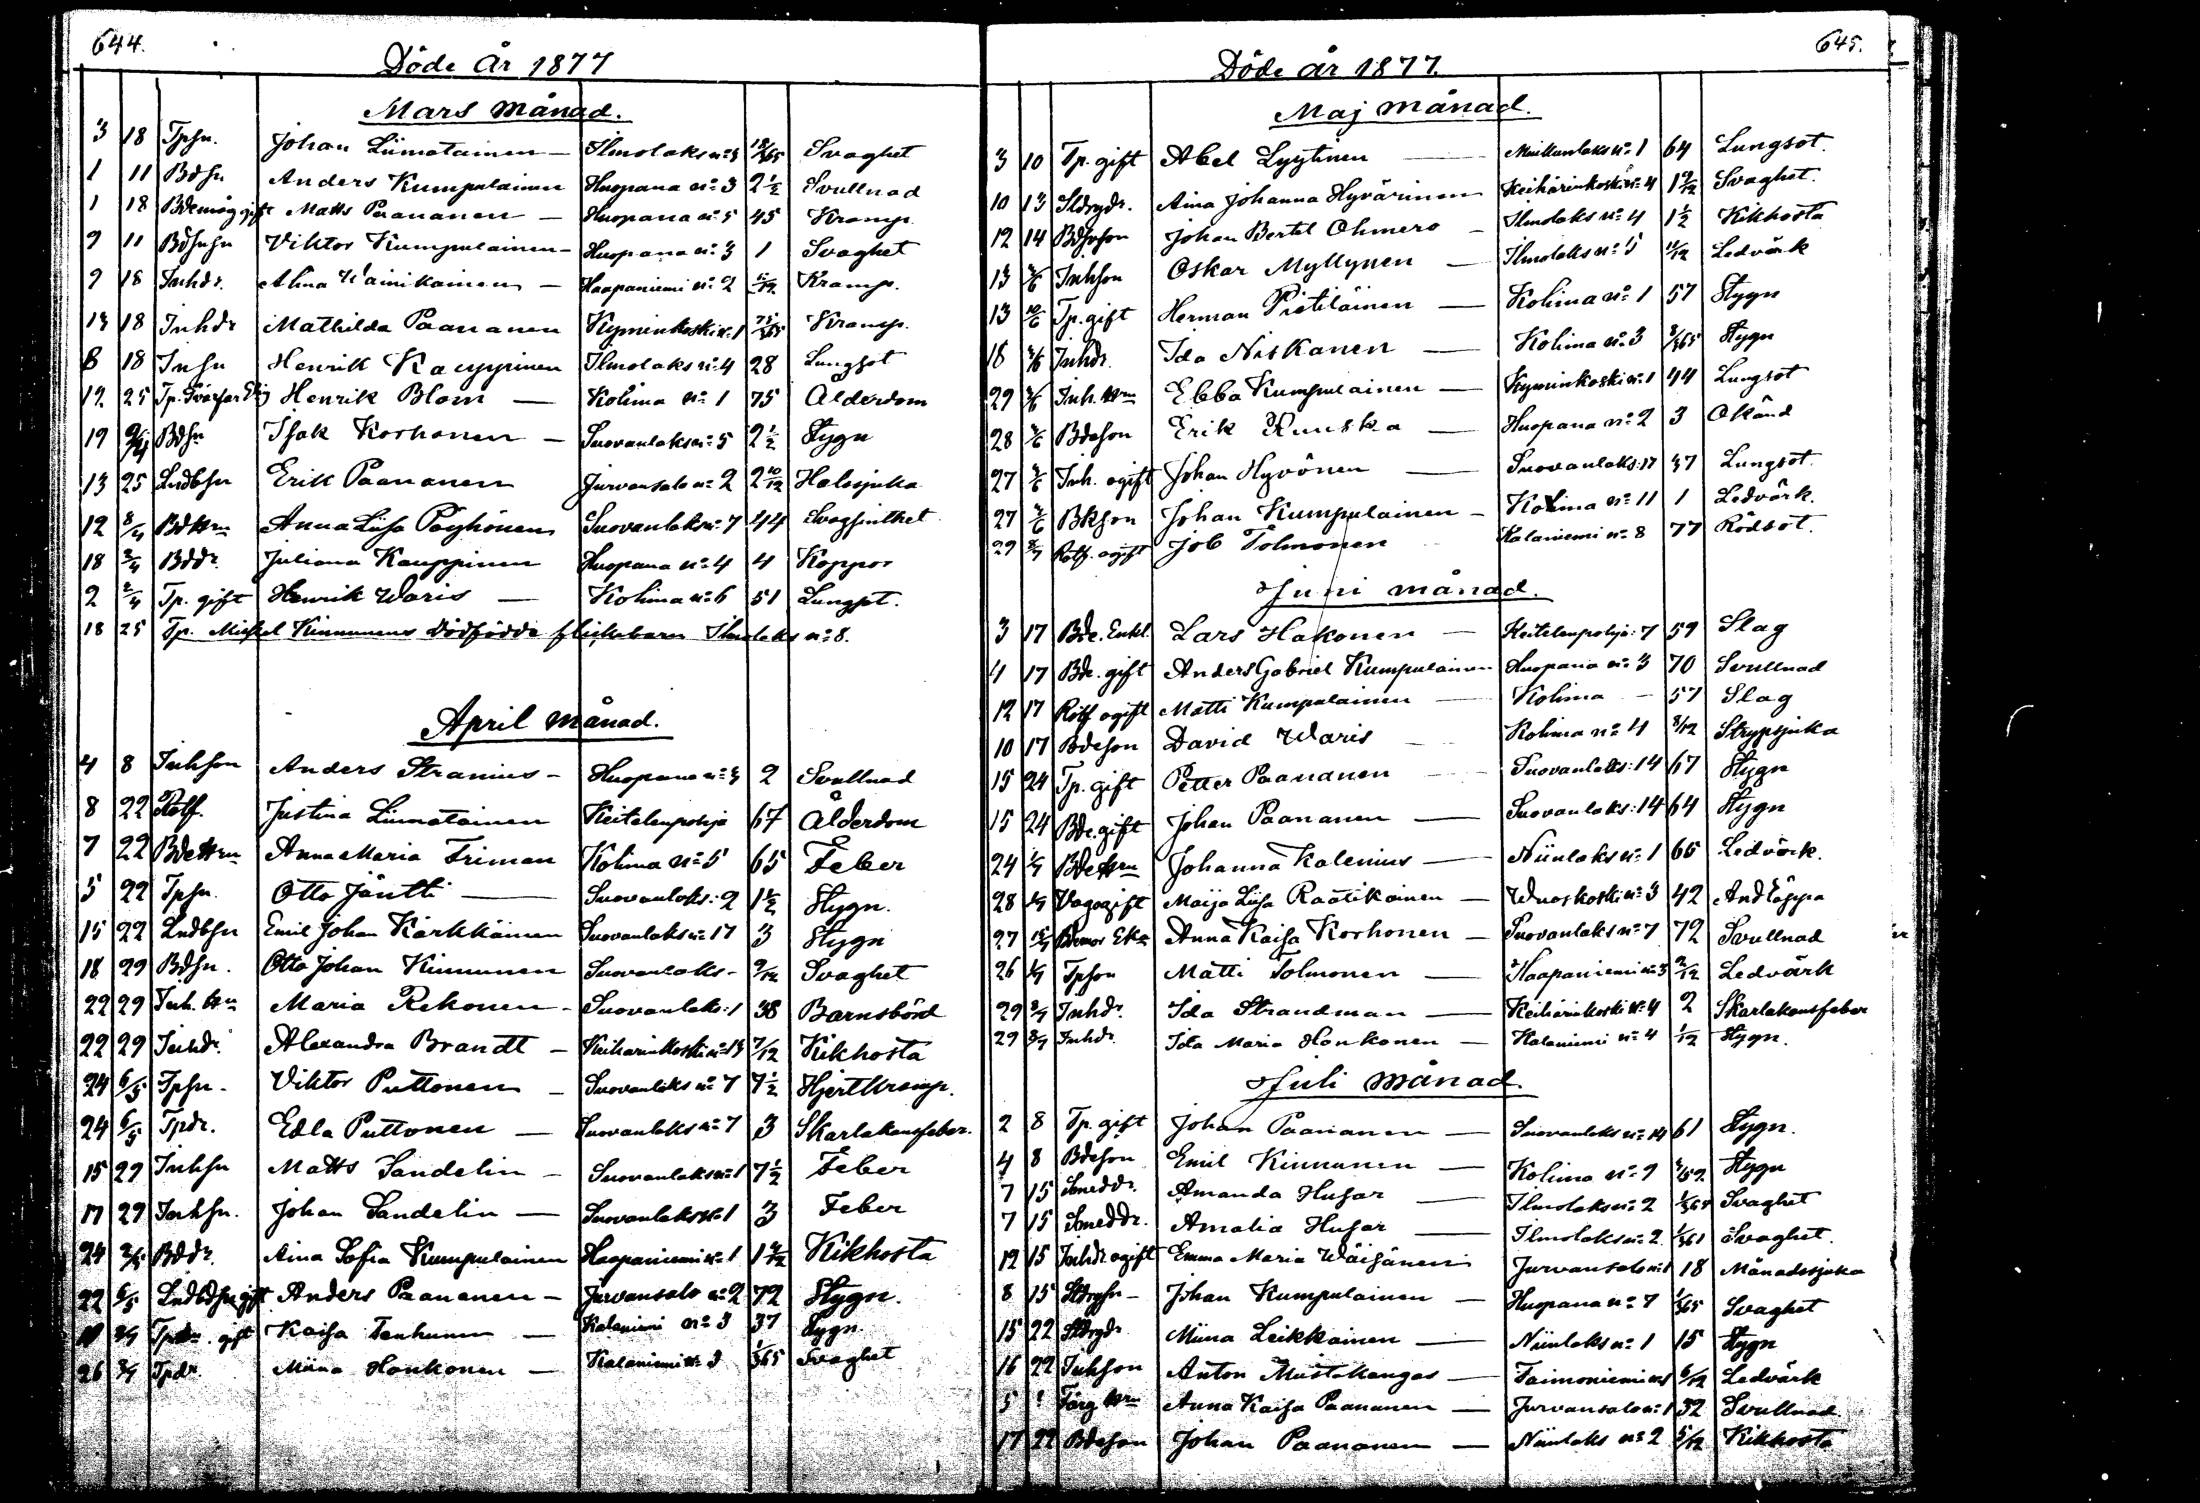 644.
Döde År 1877
Mars månad.
3 18 Tphn. Johan Liimatainen — Ilmolaks no 3 18/365 Svaghet
1 11 Bdhn Anders Kumpulainen Huopana no 3 2 1/2 Svullnad
1 18 Bdemåg gift Matts Paananen — Huopana no 5 45 Kramp.
9 11 Bdhnhn Viktor Kumpulainen - Huopana no 3 1 Svaghet
9 18 Inhdr. Alma Wainikainen — Haapaniemi no 2 5/12 Kramp.
13 18 Inhdr Mathilda Paananen Kyminkoski no 1 75/365 Kramp.
8 18 Inhn Henrik Kauppinen Ilmolaks no 4 28 Lungsot
12 25 Tp. Svärfar Henrik Blom — Kolima no 1 75 Ålderdom
19 2/4 Bdhn Isak Korhonen — Suovanlaks no 5 2 1/2 Stygn
13 25 Lndbhn Erik Paananen Jurvansalo no 2 2 10/12 Halssjuka
12 8/4 Bdhru Anna Liisa Pöyhönen Suovanlaks no 7 44
18 2/4 Bddr. Juliana Kauppinen Huopana no 4 4 Koppor
2 2/4 Tp. gift Henrik Waris — Kolima no 6 51 Lungsot.
18 25 Tp. Mickel Kinnunens dödfödda flickebarn Ilmolaks no 8.
April månad.
4 8 Inhson Anders Stranius - Huopana no 3 2 Svullnad
8 22 Rotf. Justina Liimatainen Keitelenpohja 67 Ålderdom
7 22 Bdehru Anna Maria Friman Kolima no 5 65 Feber
5 22 Tphn. Otto Jäntti — Suovanlaks: 2 1 1/2 Stygn.
15 22 Lndbhn Emil Johan Kärkkäinen Suovanlaks no 17 3 Stygn
18 29 Bdhn. Otto Johan Kinnunen Suovanlaks - 9/12 Svaghet
22 29 Inh. hru Maria Rekonen - Suovanlaks: 1 38 Barnsbörd
22 29 Inhdr. Alexandra Brandt — Keihärinkoski no 13 7/12 Kikhosta
24 6/5 Tphn - Viktor Puttonen — Suovanlaks no 7 7 1/2 Hjertkramp.
24 6/5 Tpdr. Edla Puttonen — Suovanlaks no 7 3 Skarlakansfeber.
15 29 Inhhn Matts Sandelin — Suovanlaks no 1 7 1/2 Feber
17 29 Inhhn. Johan Sandelin — Suovanlaks no 1 3 Feber
24 Bddr. Aina Sofia Kumpulainen Haapaniemi no 1 Kikhosta
22 6/5 gift Anders Paananen — Jurvansalo no 2 72 Stygn.
gift Kaisa Tenhunen — Kalaniemi no 3 37 Stygn.
26 Tpdr. Miina Honkonen — Kalaniemi no 3 1/365 Svaghet
645.
Döde år 1877.
Maj månad.
3 10 Tp. gift Abel Lyytinen — no 1 64 Lungsot.
10 13 Sldrgdr. Aina Johanna Hyvärinen Keihärinkoski no 4 Svaghet.
12 14 Bdhnson Johan Bertel Ohmero - Ilmolaks no 4 1 1/2 Kikhosta
13 Inhson Oskar Myllynen — Ilmolaks no 5 11/12 Ledvärk
13 10/6 Tp. gift Herman Pietiläinen — Kolima no 1 57 Stygn
18 Inhdr. Ida Niskanen — Kolima no 3 8/365 Stygn
29 Inh. hru Ebba Kumpulainen — Kyminkoski no 1 44 Lungsot
28 Bdeson Erik Ruuska — Huopana no 2 3 Okänd
27 Inh. ogift Johan Hyvönen — Suovanlaks: 17 37 Lungsot.
27 Bkson Johan Kumpulainen - Kolima no 11 1 Ledvärk.
29 Rotf. ogift Job Tolmonen - Kalaniemi no 8 77 Rödsot.
Juni månad.
3 17 Bde. Enkl. Lars Hakonen — Keitelenpohja: 7 59 Slag
4 17 Bde. gift Anders Gabriel Kumpulainen Huopana no 3 70 Svullnad
12 17 Rotf ogift Matti Kumpulainen — Kolima - 57 Slag
10 17 Bdeson David Waris — Kolima no 4 8/12 Strypsjuka
15 24 Tp. gift Petter Paananen — Suovanlaks: 14 67 Stygn
15 24 Bde. gift Johan Paananen — Suovanlaks: 14 64 Stygn
24 1/7 Bdehru Johanna Kalenius — Niinlaks no 1 65 Ledvärk.
28 Maija Liisa Räätikäinen — Wuoskoski no 3 42 Andtäppa
27 Anna Kaisa Korhonen — Suovanlaks no 7 72 Svullnad
26 Tpson Matti Tolmonen — Haapaniemi no 3 2/12 Ledvärk
29 8/7 Inhdr. Ida Strandman — Keihärinkoski no 4 2 Skarlakansfeber
29 8/7 Inhdr. Ida Maria Honkonen — Kalaniemi no 4 1/12 Stygn.
Juli månad.
2 8 Tp. gift Johan Paananen — Suovanlaks no 14 61 Stygn.
4 8 Bdeson Emil Kinnunen — Kolima no 9 Stygn
7 15 Smeddr. Amanda Husar — Ilmolaks no 2 Svaghet
7 15 Smeddr. Amalia Husar — Ilmolaks no 2 Svaghet.
12 15 Inhdr ogift Emma Maria Wäisänen Jurvansalo no 1 18 Månadssjuka
8 15 Sldrghn - Johan Kumpulainen — Huopana no 7 1/365 Svaghet
15 22 Sldrgdr Miina Leikkainen — Niinlaks no 1 15 Stygn
16 22 Inhson Anton Mustakangas — Taimoniemi no 1 6/12 Ledvärk
5 hru Anna Kaisa Paananen — Jurvansalo no 1 32 Svullnad.
17 22 Bdeson Johan Paananen — Niinlaks no 2 5/12 Kikhosta